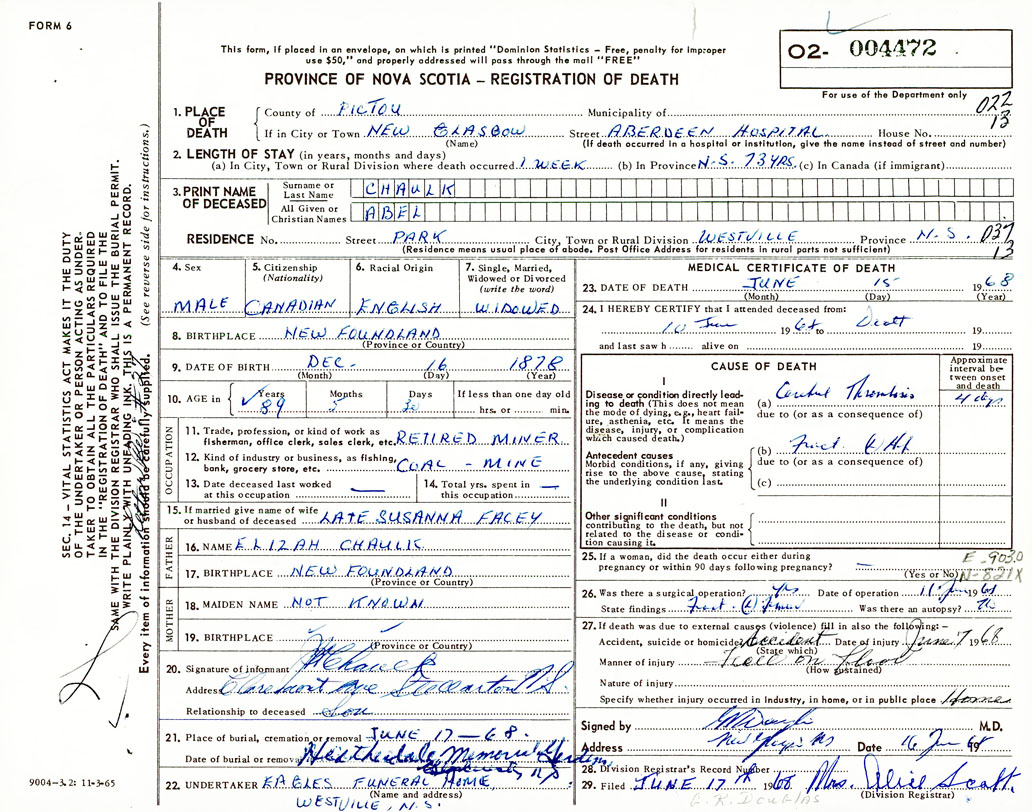 FORM 6
This form, if placed in an envelope, on which is printed "Dominion Statistics – Free, penalty for improper
use $50," and properly addressed will pass through the mail "FREE"
O2- 004472
For use of the Department only
PROVINCE OF NOVA SCOTIA – REGISTRATION OF DEATH
022
13
1. PLACE OF DEATH
County of PICTOU Municipality of
If in City or Town NEW GLASGOW Street ABERDEEN HOSPITAL House No.
(Name) (If death occurred in a hospital or institution, give the name instead of street and number)
2. LENGTH OF STAY (in years, months and days)
(a) In City, Town or Rural Division where death occurred 1 WEEK (b) In Province N.S. 73 YRS. (c) In Canada (if immigrant)
3. PRINT NAME OF DECEASED
Surname or Last Name CHAULK
All Given or Christian Names ABEL
RESIDENCE No. Street PARK City, Town or Rural Division WESTVILLE Province N.S. 037
(Residence means usual place of abode. Post Office Address for residents in rural parts not sufficient) 13
4. Sex MALE
5. Citizenship (Nationality) CANADIAN
6. Racial Origin ENGLISH
7. Single, Married, Widowed or Divorced (write the word) WIDOWED
8. BIRTHPLACE NEW FOUNDLAND
(Province or Country)
9. DATE OF BIRTH DEC. 16 1878
(Month) (Day) (Year)
10. AGE in Years 89 Months 5 Days If less than one day old hrs. or min.
OCCUPATION
11. Trade, profession, or kind of work as
fisherman, office clerk, sales clerk, etc. RETIRED MINER
12. Kind of industry or business, as fishing,
bank, grocery store, etc. COAL – MINE
13. Date deceased last worked at this occupation —
14. Total yrs. spent in this occupation —
15. If married give name of wife
or husband of deceased LATE SUSANNA FACEY
FATHER
16. NAME ELIZAH CHAULK
17. BIRTHPLACE NEW FOUNDLAND
(Province or Country)
MOTHER
18. MAIDEN NAME NOT KNOWN
19. BIRTHPLACE
(Province or Country)
20. Signature of informant
Address Claremont Ave Stellarton N.S.
Relationship to deceased Son
21. Place of burial, cremation or removal JUNE 17 – 68.
Date of burial or removal Heatherdale Memorial Gardens
22. UNDERTAKER EAGLES FUNERAL HOME,
(Name and address)
WESTVILLE, N.S.
MEDICAL CERTIFICATE OF DEATH
23. DATE OF DEATH JUNE 15 1968
(Month) (Day) (Year)
24. I HEREBY CERTIFY that I attended deceased from:
10 June 1968 to Death 19
and last saw h alive on 19
CAUSE OF DEATH
Approximate interval between onset and death
I
Disease or condition directly leading to death (This does not mean the mode of dying, e.g., heart failure, asthenia, etc. It means the disease, injury, or complication which caused death.)
(a) Cerebral Thrombosis 4 days
due to (or as a consequence of)
Antecedent causes
Morbid conditions, if any, giving rise to the above cause, stating the underlying condition last.
(b) Fract. Hip
due to (or as a consequence of)
(c)
II
Other significant conditions
contributing to the death, but not related to the disease or condition causing it.
25. If a woman, did the death occur either during
pregnancy or within 90 days following pregnancy? —
(Yes or No)
E-903.0
N-821X
26. Was there a surgical operation? yes Date of operation 11 June 1968
State findings Fract. Femur Was there an autopsy? No
27. If death was due to external causes (violence) fill in also the following: –
Accident, suicide or homicide Accident Date of injury June 7 1968
(State which)
Manner of injury Fall on Floor
(How sustained)
Nature of injury
Specify whether injury occurred in Industry, in home, or in public place Home
Signed by M.D.
Address Date 16 June 68
28. Division Registrar's Record Number
29. Filed JUNE 17th 1968 Mrs. Alice Scott.
(Division Registrar)
G. R. DOUGLAS
SEC. 14 – VITAL STATISTICS ACT MAKES IT THE DUTY
OF THE UNDERTAKER OR PERSON ACTING AS UNDER-
TAKER TO OBTAIN ALL THE PARTICULARS REQUIRED
IN THE "REGISTRATION OF DEATH" AND TO FILE THE
SAME WITH THE DIVISION REGISTRAR WHO SHALL ISSUE THE BURIAL PERMIT.
WRITE PLAINLY WITH UNFADING INK. THIS IS A PERMANENT RECORD.
Every item of information should be carefully supplied. (See reverse side for instructions.)
9004-3.2: 11-3-65